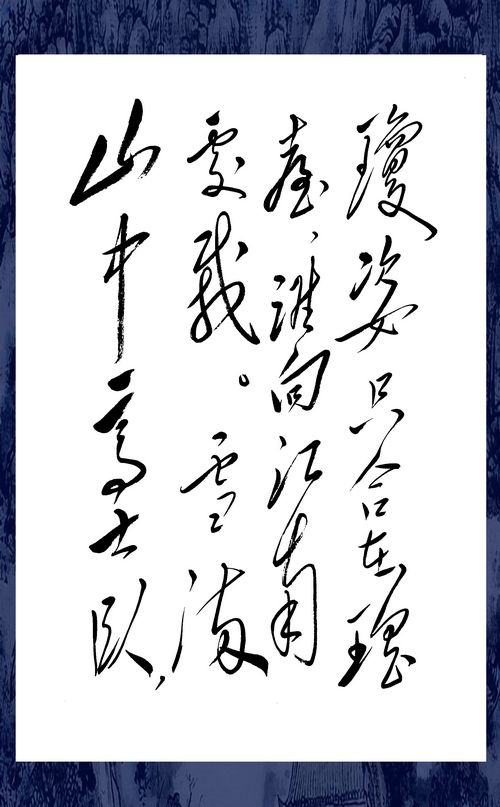 瓊姿只合在瑤
臺，誰向江南
處栽。雪滿
山中高士臥，